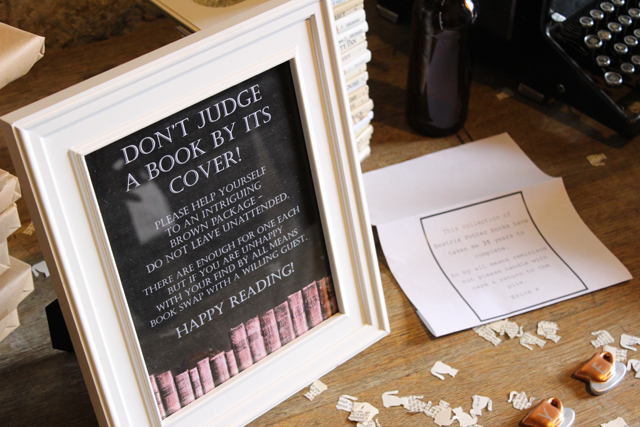 DON'T JUDGE
A BOOK BY ITS
COVER!
PLEASE HELP YOURSELF
TO AN INTRIGUING
BROWN PACKAGE –
DO NOT LEAVE UNATTENDED.
THERE ARE ENOUGH FOR ONE EACH
BUT IF YOU ARE UNHAPPY
WITH YOUR FIND BY ALL MEANS
BOOK SWAP WITH A WILLING GUEST.
HAPPY READING!
This collection of
Beatrix Potter books have
taken me 35 years to
complete.
So by all means reminisce
but please handle with
care & return to the
pile.